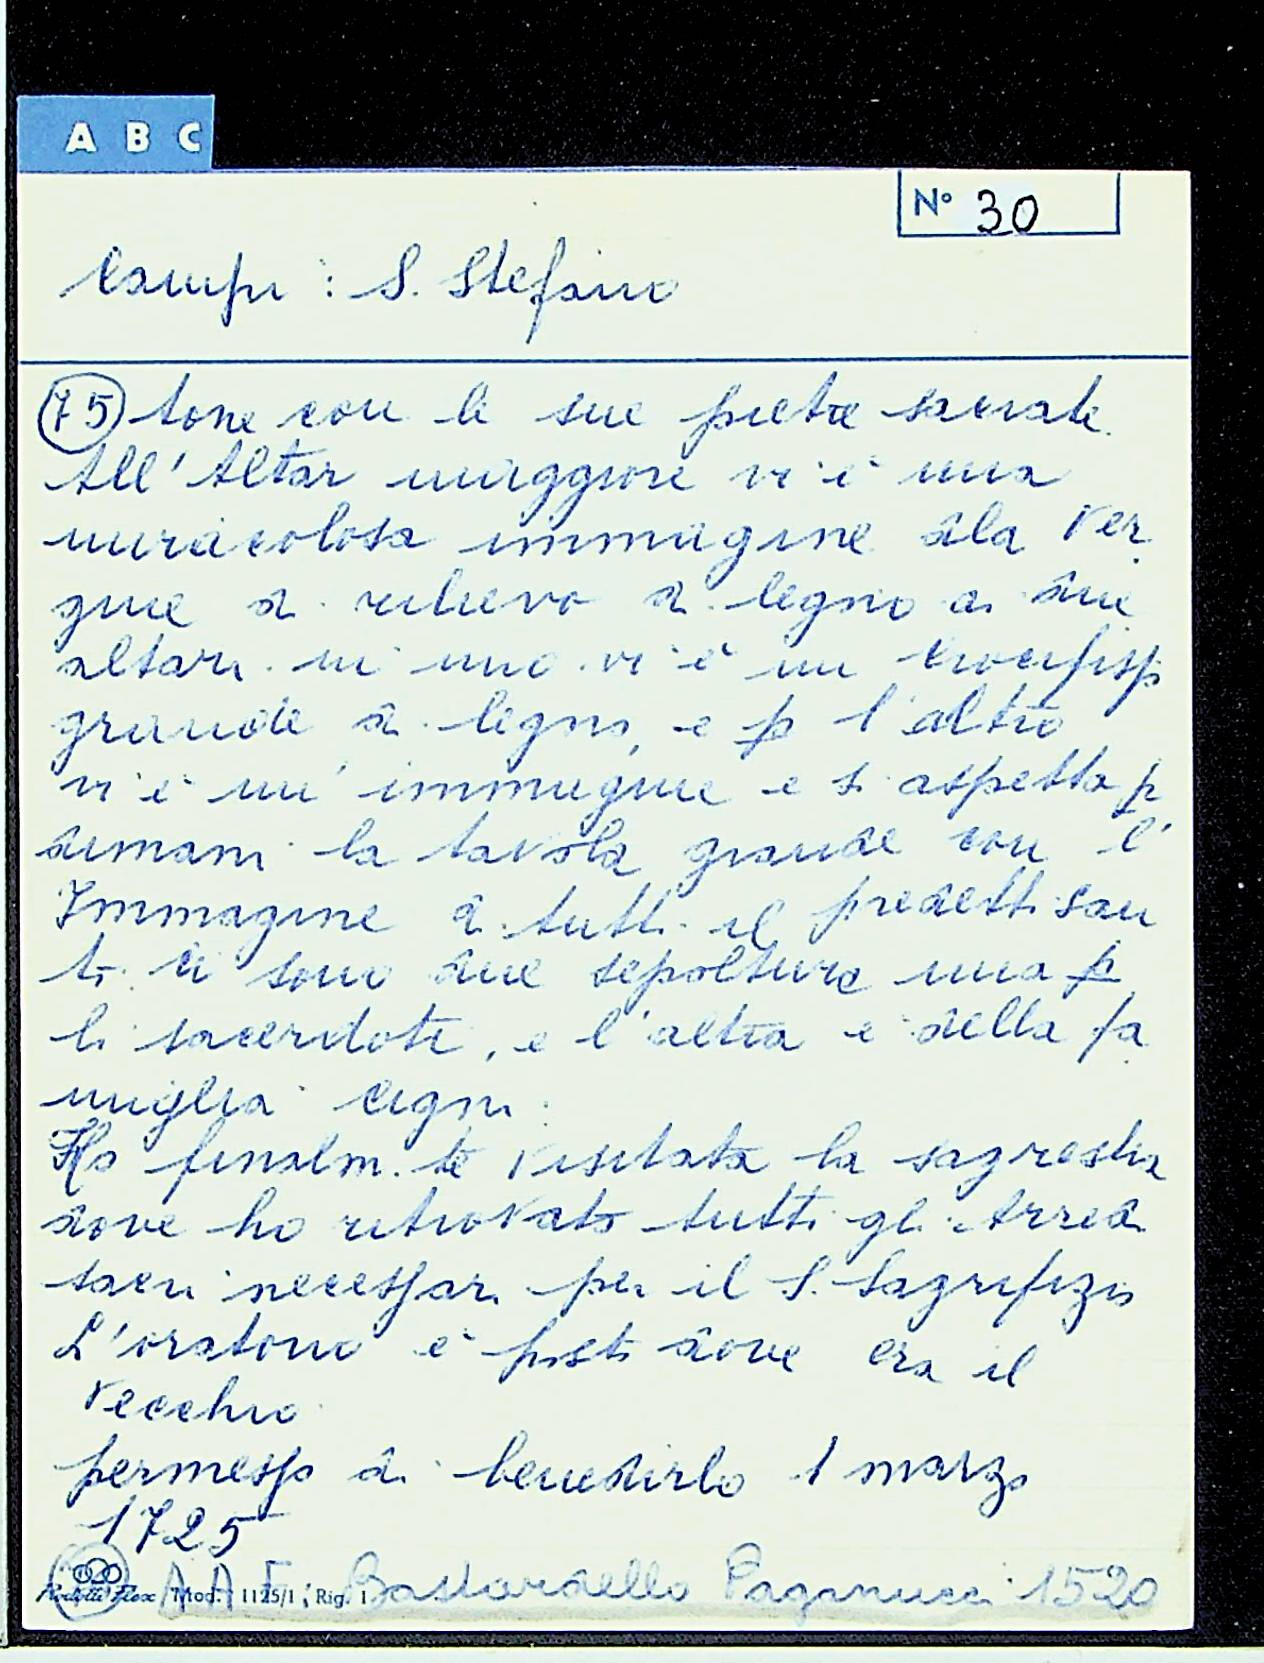 A B C
N° 30
Campi : S. Stefano
75 tone con le sue pietre sacrate.
All'Altar maggiore vi è una
miracolosa immagine dela Ver
gine di rilievo di legno a due
altari. in uno vi è un crocefisso
grande di legno, e p l'altro
vi è un'immagine e si aspetta p
dimani la tavola grande con l'
Immagine di tutti il predetti san
ti. Ci sono due sepolture una p
li sacerdoti, e l'altra è della fa
miglia Cigni.
Ho finalm.te visitata la sagrestia
dove ho ritrovato tutti gli Arredi
sacri necessari per il S. Sagrifizio
L'oratorio è posto dove era il
vecchio
permesso di benedirlo 1 marzo
1725
Mod. 1125/1, Rig. 1
A A F, Bastardello Paganucci 1520